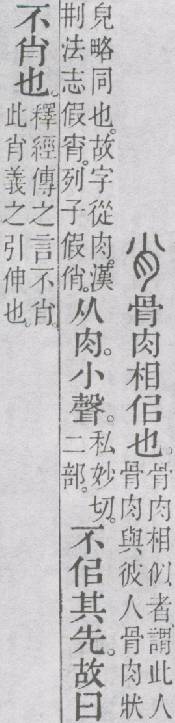 肖骨肉相佀也。骨肉相似者、謂此人
骨肉與彼人骨肉狀
皃略同也。故字從肉。漢
刑法志假宵。列子假俏。
从肉。小聲。私妙切。
二部。
不佀其先。故曰
不肖也。釋經傳之言不肖。
此肖義之引伸也。